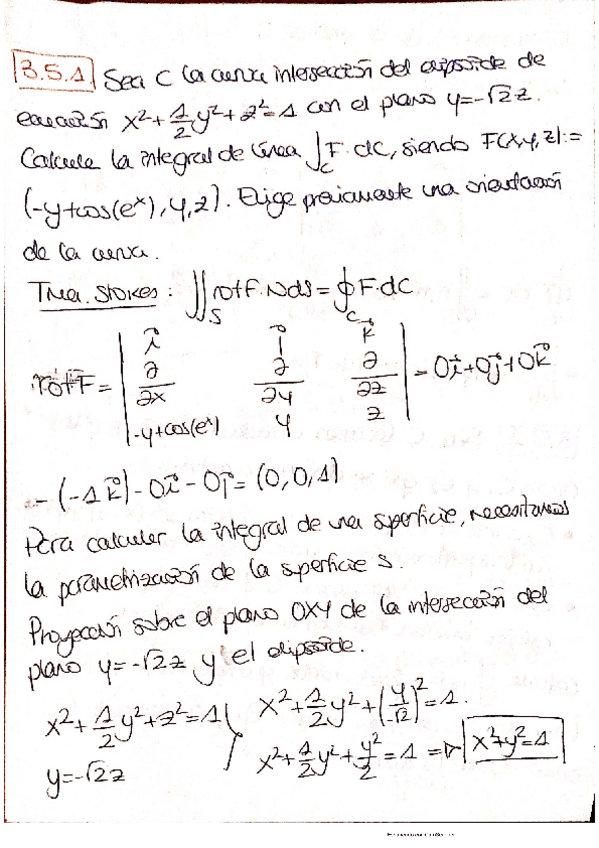 3.5.1 Sea C la curva intersección del elipsoide de
ecuación x²+1/2y²+z²=1 con el plano y=-√2z.
Calcule la integral de línea ∫_C F·dC, siendo F(x,y,z):=
(-y+cos(eˣ),y,z). Elige previamente una orientación
de la curva.
Tma. Stokes: ∬_S rotF·Nds=∮_C F·dC
rotF = | i⃗ j⃗ k⃗ ; ∂/∂x ∂/∂y ∂/∂z ; -y+cos(eˣ) y z | = 0i⃗+0j⃗+0k⃗
-(-1k⃗)-0i⃗-0j⃗=(0,0,1)
Para calcular la integral de una superficie, necesitamos
la parametrización de la superficie S.
Proyección sobre el plano OXY de la intersección del
plano y=-√2z y el elipsoide.
x²+1/2y²+z²=1 } x²+1/2y²+(y/-√2)²=1.
y=-√2z } x²+1/2y²+y²/2=1 => x²+y²=1